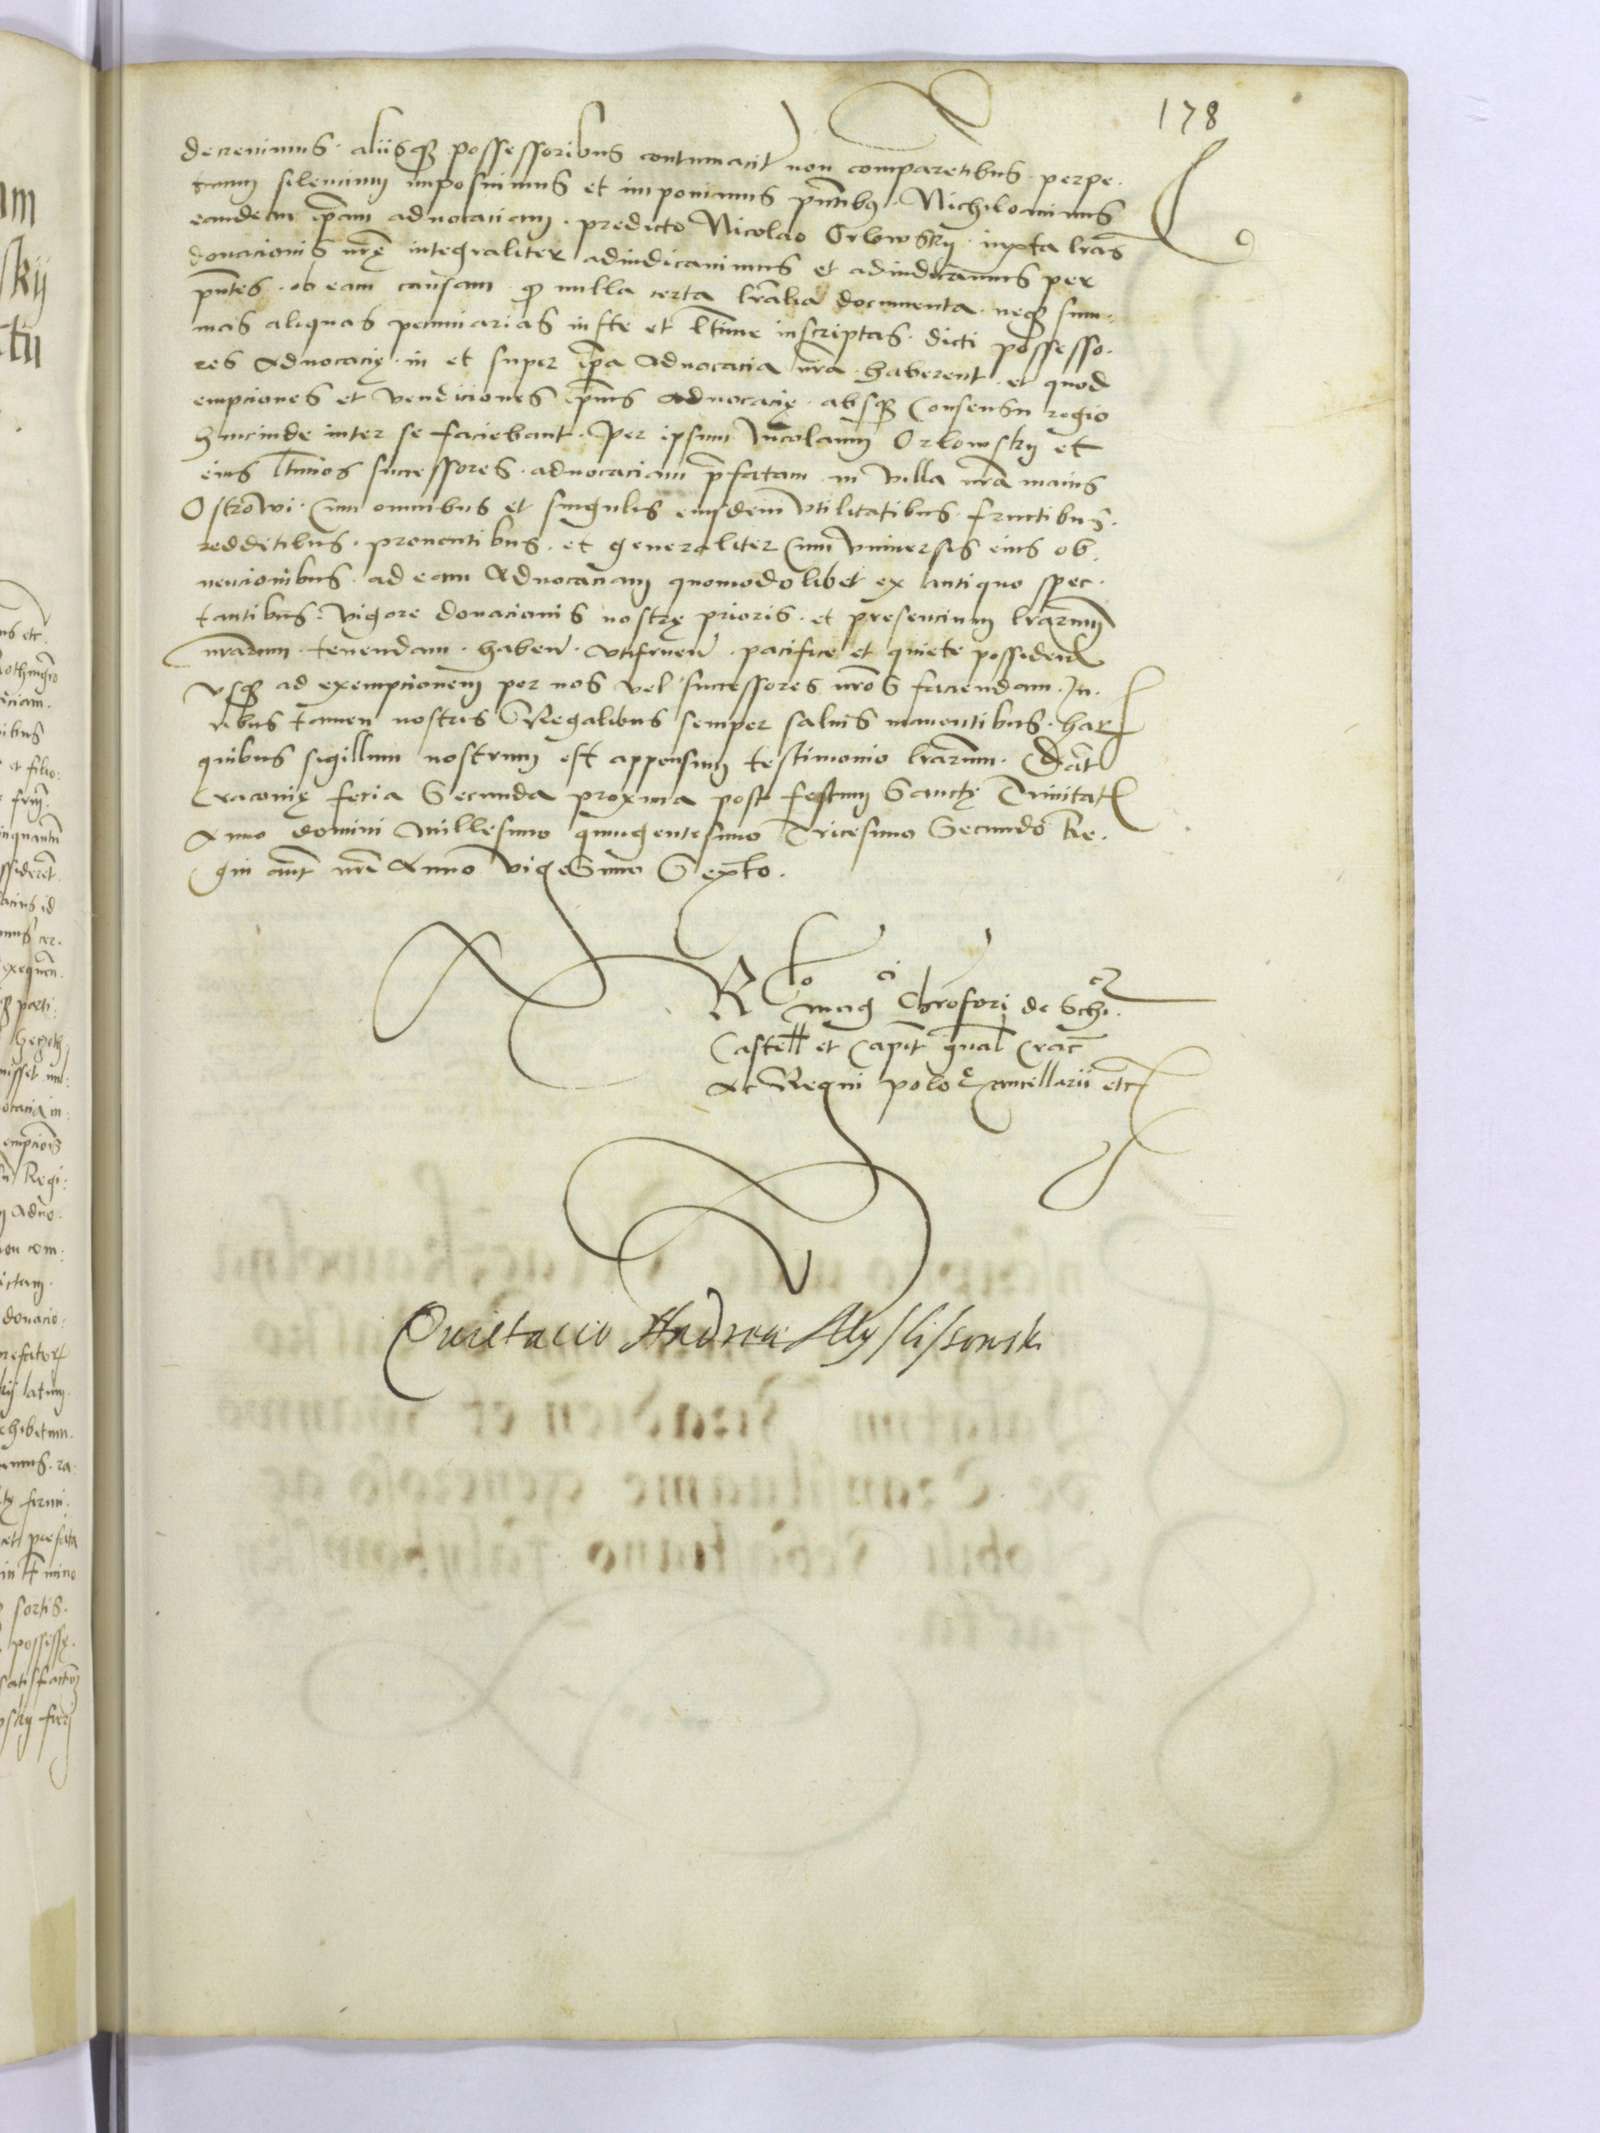 178
decrevimus · aliisq̃ possessoribus contumacit̃ non compare͂tibus · perpe·
tuum silencium imposuimus et imponimus pñtibꝰ · Nichilominus
eandem ip̃am advocaciam · predicto Nicolao Orlowskij · iuxta lr̃as
donacionis nr̃ę integraliter adiudicavimus et adiudicamus per
pñtes · ob eam causam · q̃ nulla certa lr̃alia documenta · neq̃ sum·
mas aliquas pecuniarias iuste et l̃time inscriptas · dicti possesso·
res advocacię · in et super ip̃a advocacia nr̃a · haberent · et quod
empciones et vendiciones ip̃ius advocacię · absq̃ consensu regio
hincinde inter se faciebant · Per ipsum Nicolaum Orlowskij et
eius l̃timos successores · advocaciam p̃fatam in villa nr̃a maius
Ostrowi · cum omnibus et singulis eiusdem utilitatibus · fructibus ·
redditibus · proventibus · et generaliter cum universis eius ob·
vencionibus · ad eam advocaciam quomodolibet ex antiquo spec·
tantibus · vigore donacionis nostrę prioris · et presencium lr̃arum
nr̃arum · tenendam · habend̃ · utifruend̃ · pacifice et quiete possidend̃
usq̃ ad exempcionem per nos vel successores nr̃os faciendam · Iu·
ribus tamen nostris Regalibus semper salvis manentibus · har̃
quibus sigillum nostrum est appensum testimonio lr̃arum · Dat̃
Cracovię feria Secunda proxima post festum Sanctę Trinitat̃
Anno domini Millesimo quingentesimo Tricesimo Secundo Re·
gni aut̃ nr̃i Anno vigesimo Sexto ·
Rlo magci Chrosfori de Schi.
Castell̃ et Capit̃ gnal̃ Crac̃
ac Regni polo Cancellarii etc̃
Quietacio Andree Myslissowski